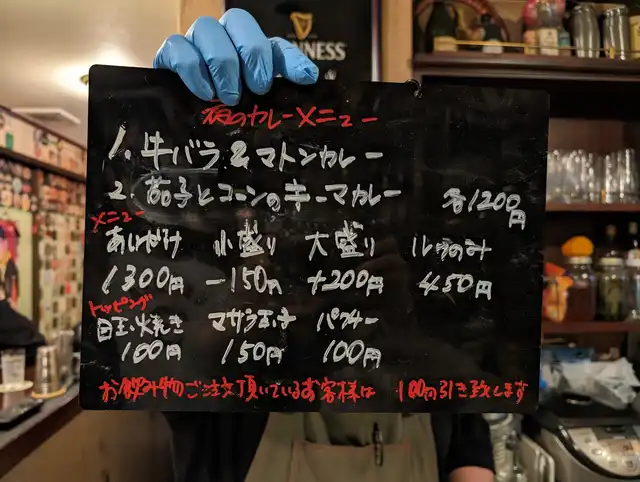 GUINNESS
夜のカレーメニュー
1. 牛バラ&マトンカレー
2. 茄子とコーンのキーマカレー 各1200円
メニュー
あいがけ 小盛り 大盛り ルウのみ
1300円 -150円 +200円 450円
トッピング
目玉焼き マサラ玉子 パクチー
100円 150円 100円
お飲み物ご注文頂いているお客様は 100円引き致します